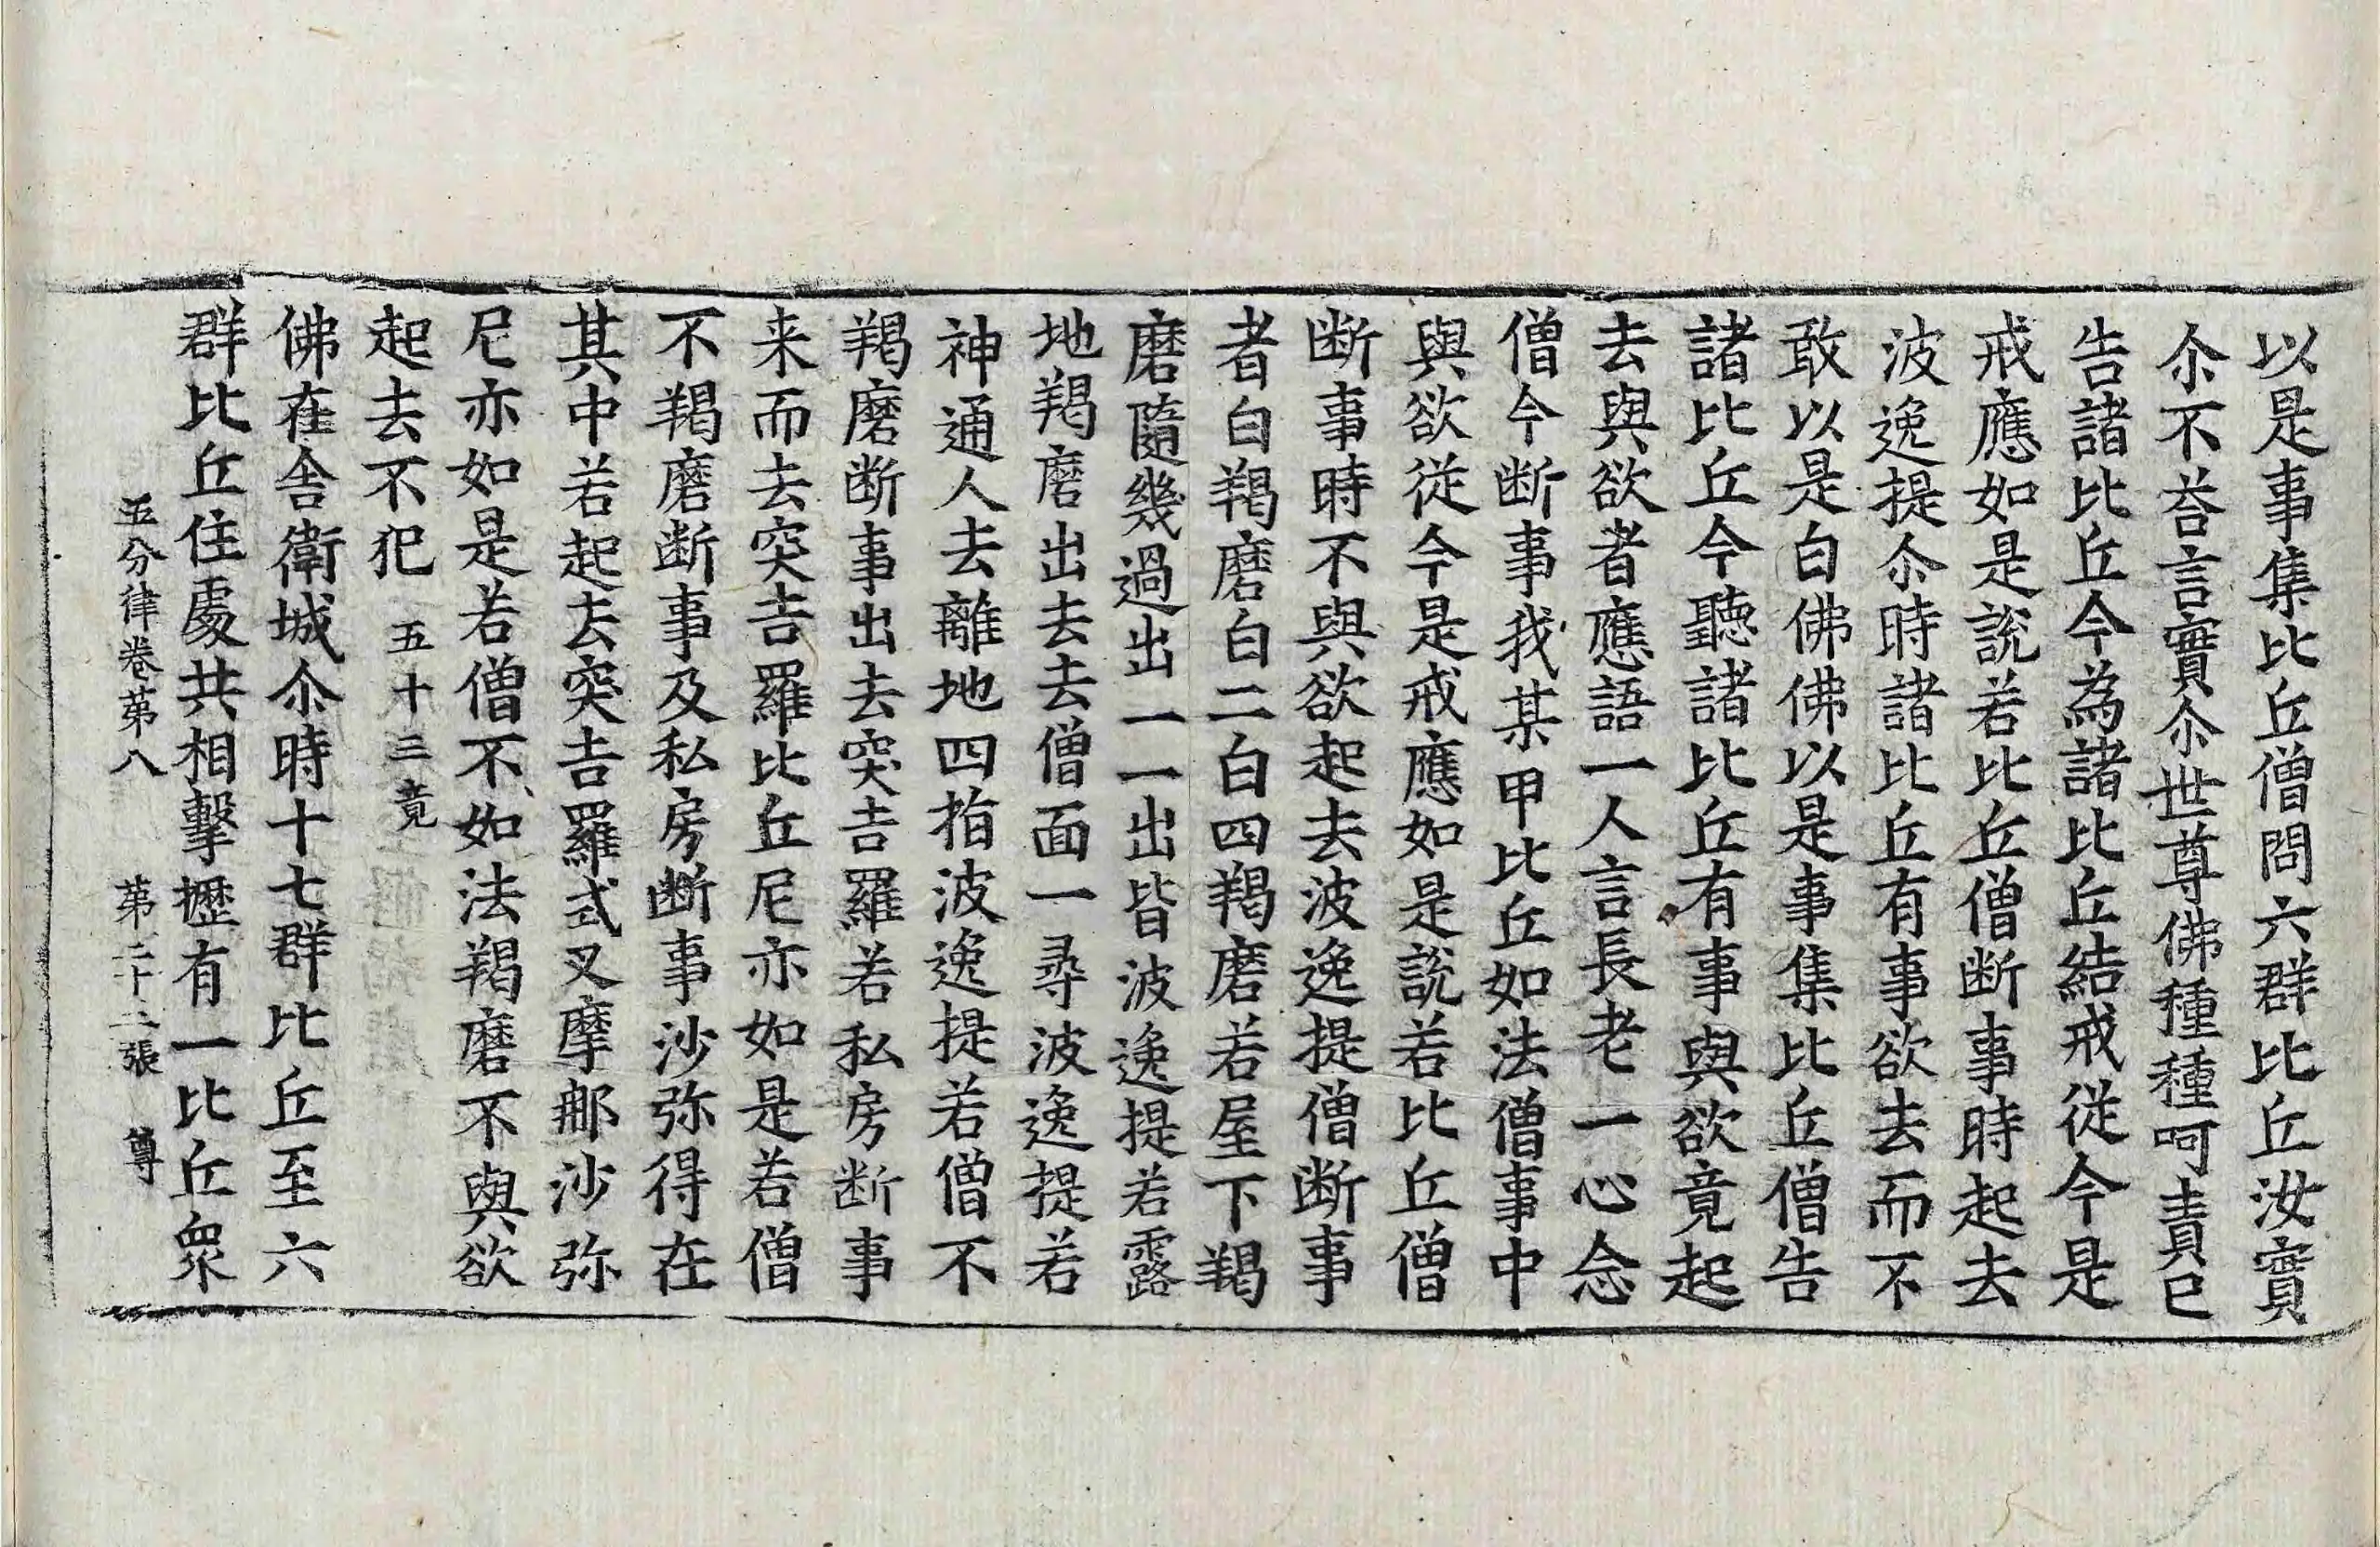 以是事集比丘僧問六群比丘汝實
尒不荅言實尒世尊佛種種呵責已
告諸比丘今為諸比丘結戒從今是
戒應如是說若比丘僧断事時起去
波逸提尒時諸比丘有事欲去而不
敢以是白佛佛以是事集比丘僧告
諸比丘今聽諸比丘有事與欲竟起
去與欲者應語一人言長老一心念
僧今断事我某甲比丘如法僧事中
與欲從今是戒應如是說若比丘僧
断事時不與欲起去波逸提僧断事
者白羯磨白二白四羯磨若屋下羯
磨隨幾過出一一出皆波逸提若露
地羯磨出去去僧面一尋波逸提若
神通人去離地四指波逸提若僧不
羯磨断事出去突吉羅若私房断事
来而去突吉羅比丘尼亦如是若僧
不羯磨断事及私房断事沙弥得在
其中若起去突吉羅式叉摩那沙弥
尼亦如是若僧不如法羯磨不與欲
起去不犯 五十三竟
佛在舍衛城尒時十七群比丘至六
群比丘住處共相擊攊有一比丘衆
五分律卷苐八 苐二十二張 尊